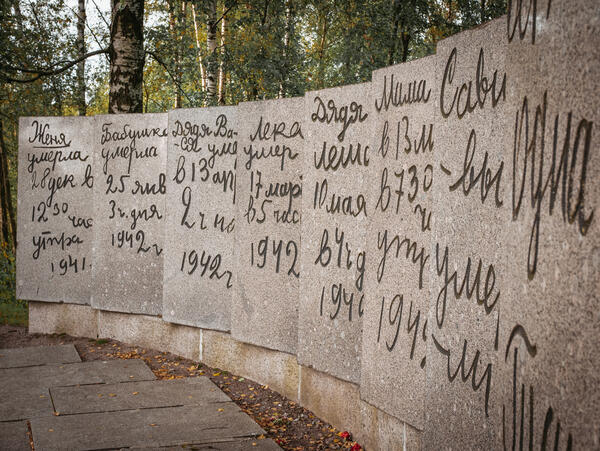 Женя
умерла
28 дек в
12 30 час
утра
1941
Бабушка
умерла
25 янв
3 ч. дня
1942 г
Дядя Ва-
ся уме
в 13 ап
2 ч но
1942 г
Лека
умер
17 мар
в 5 час
1942
Дядя
Леш
10 мая
в 4 ч д
194
Мама
в 13 м
в 7 30
ч
утр
194
Сави
-вы
уме
-ли
Одна